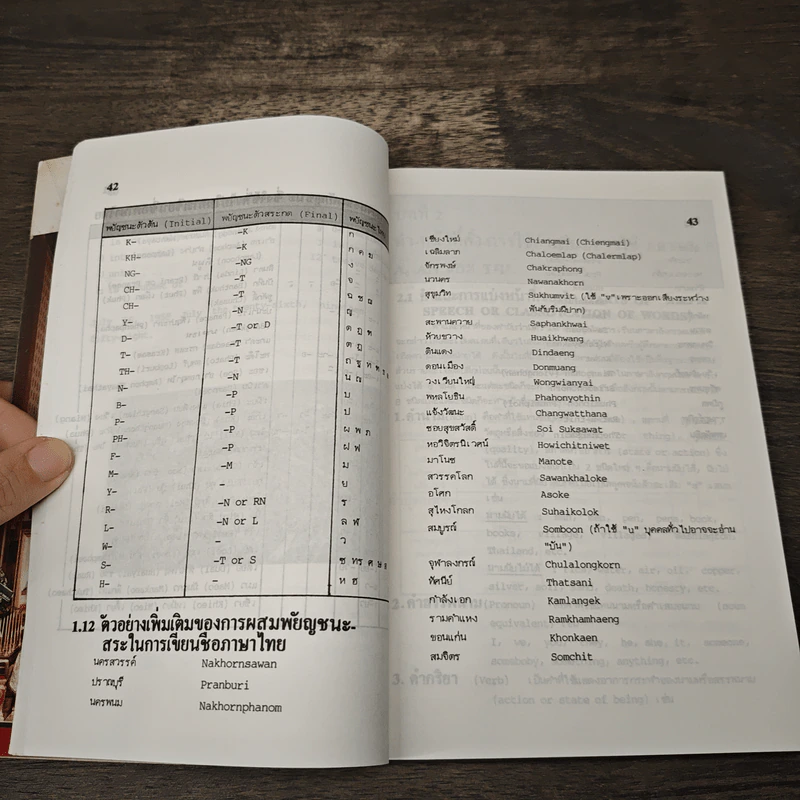 42
พยัญชนะตัวต้น (Initial) พยัญชนะตัวสะกด (Final)
K- -K ก
KH- -K ก ค ม
NG- -NG ง
CH- -T จ
CH- -T ฉ ช ฌ
Y- -N ญ
D- -T or D ด ฎ ฑ
T- -T ต ฏ
TH- -T ถ ฐ ท ฑ ธ
N- -N น ณ
B- -P บ
P- -P ป
PH- -P ผ พ ภ
F- -P ฝ ฟ
M- -M ม
Y- - ย
R- -N or RN ร
L- -N or L ล ฬ
W- - ว
S- -T or S ซ ทร ศ ษ ส
H- - ห ฮ
1.12 ตัวอย่างเพิ่มเติมของการผสมพยัญชนะ-
สระในการเขียนชื่อภาษาไทย
นครสวรรค์ Nakhornsawan
ปราณบุรี Pranburi
นครพนม Nakhornphanom
43
เชียงใหม่ Chiangmai (Chiengmai)
เฉลิมลาภ Chaloemlap (Chalermlap)
จักรพงษ์ Chakraphong
นวนคร Nawanakhorn
สุขุมวิท Sukhumvit (ใช้ "v"เพราะออกเสียงระหว่าง
ฟันกับริมฝีปาก)
สะพานควาย Saphankhwai
ห้วยขวาง Huaikhwang
ดินแดง Dindaeng
ดอนเมือง Donmuang
วงเวียนใหญ่ Wongwianyai
พหลโยธิน Phahonyothin
แจ้งวัฒนะ Changwatthana
ซอยสุขสวัสดิ์ Soi Suksawat
หอวิจิตรนิเวศน์ Howichitniwet
มาโนช Manote
สวรรคโลก Sawankhaloke
อโศก Asoke
สุไหงโกลก Suhaikolok
สมบูรณ์ Somboon (ถ้าใช้ "u" บุคคลทั่วไปอาจจะอ่าน
"บัน")
จุฬาลงกรณ์ Chulalongkorn
ทัศนีย์ Thatsani
กำลังเอก Kamlangek
รามคำแหง Ramkhamhaeng
ขอนแก่น Khonkaen
สมจิตร Somchit